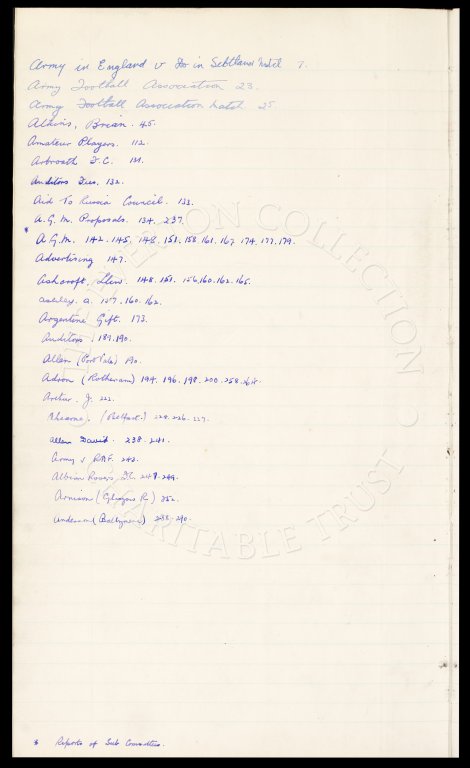 Army in England v Do in Scotland Match 7.
Army Football Association 23.
Army Football Association Match 25
Atkins, Brian. 45.
Amateur Players. 112.
Arbroath F.C. 121.
Auditors Fees, 132.
Aid To Russia Council. 133.
A.G.M. Proposals. 134. 237.
* A.G.M. 142. 145. 148. 151. 158. 161. 167. 174. 177. 179.
Advertising 147.
Ashcroft, Llew. 148. 151. 156. 160. 162. 165.
Ashley. A. 157. 160. 162.
Argentine Gift. 173.
Auditors. 189. 190.
Allen (Port Vale) 190.
Adron (Rotherham) 194. 196. 198. 200. 258. 264.
Arthur. J. 222.
(Belfast.) 224. 226. 227.
Allen David. 238. 241.
Army v R.A.F. 243.
Albion Rovers F.C. 248. 249.
Arnison (Glasgow R.) 252.
Anderson (Ballymena) 288. 290.
* Reports of Sub Committee.
COLLECTION
CHARITABLE TRUST